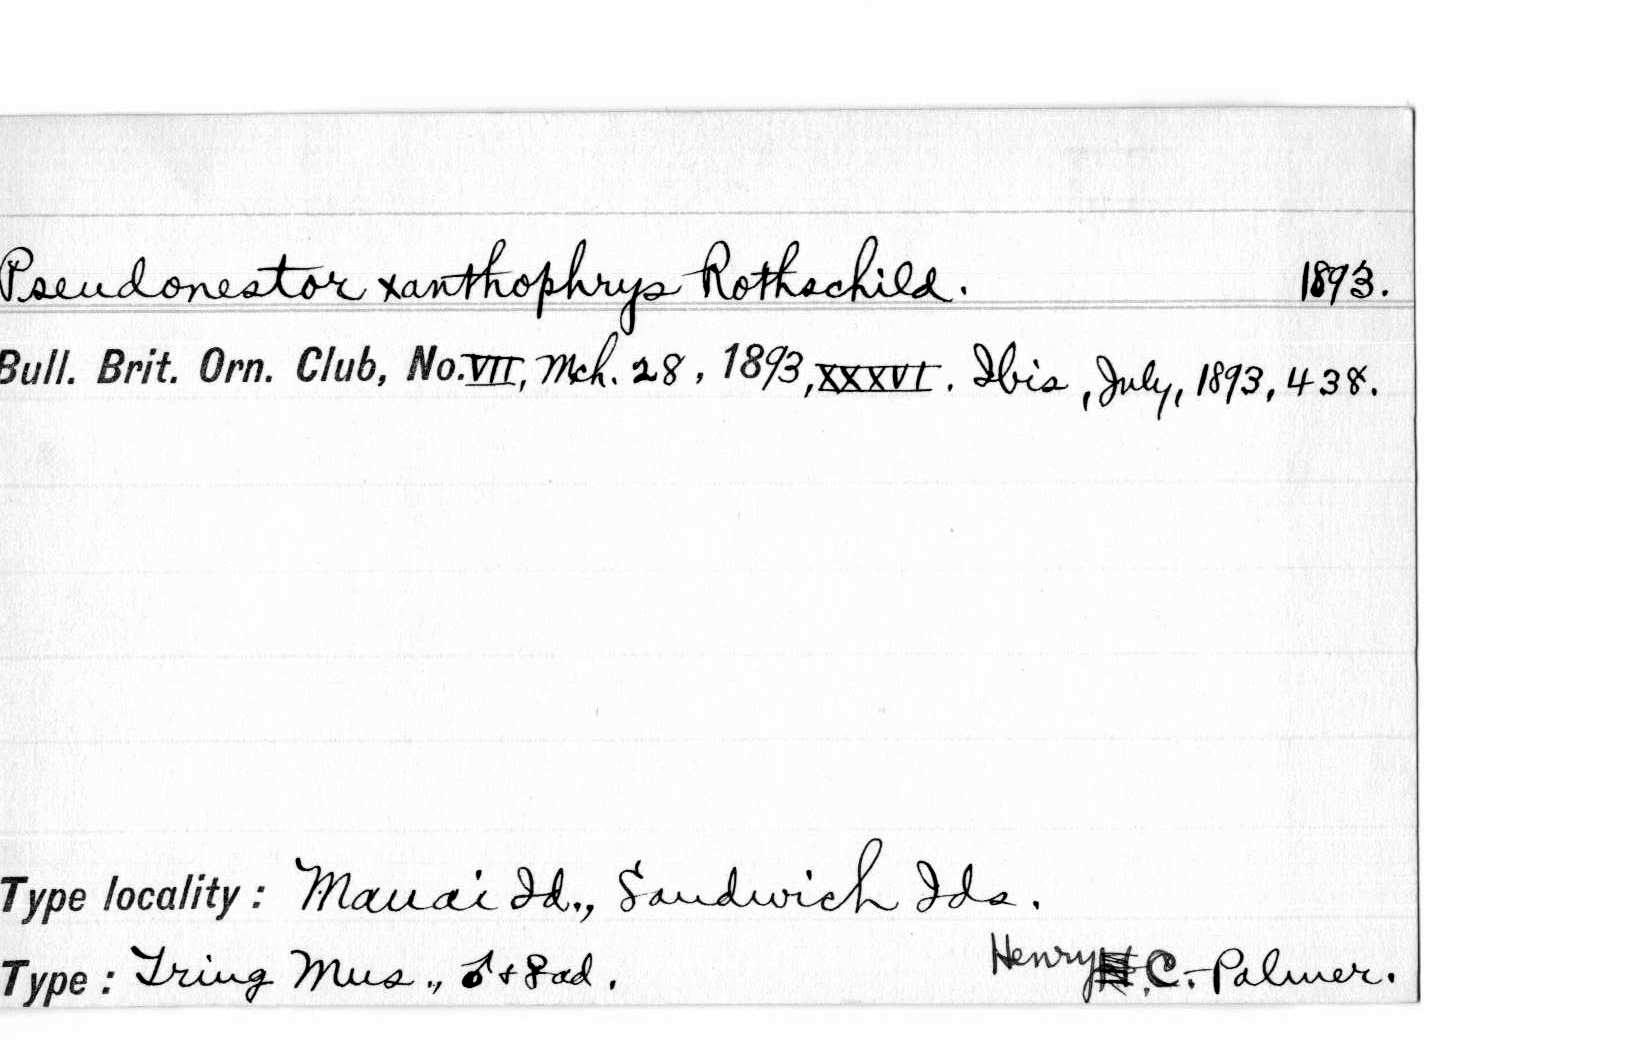 Pseudonestor xanthophrys Rothschild. 1893.
Bull. Brit. Orn. Club, No. VII, Mch. 28, 1893, XXXVI. Ibis, July, 1893, 438.
Type locality: Mauai Id., Sandwich Ids.
Type: Tring Mus., ♂ + ♀ ad. Henry C. Palmer.